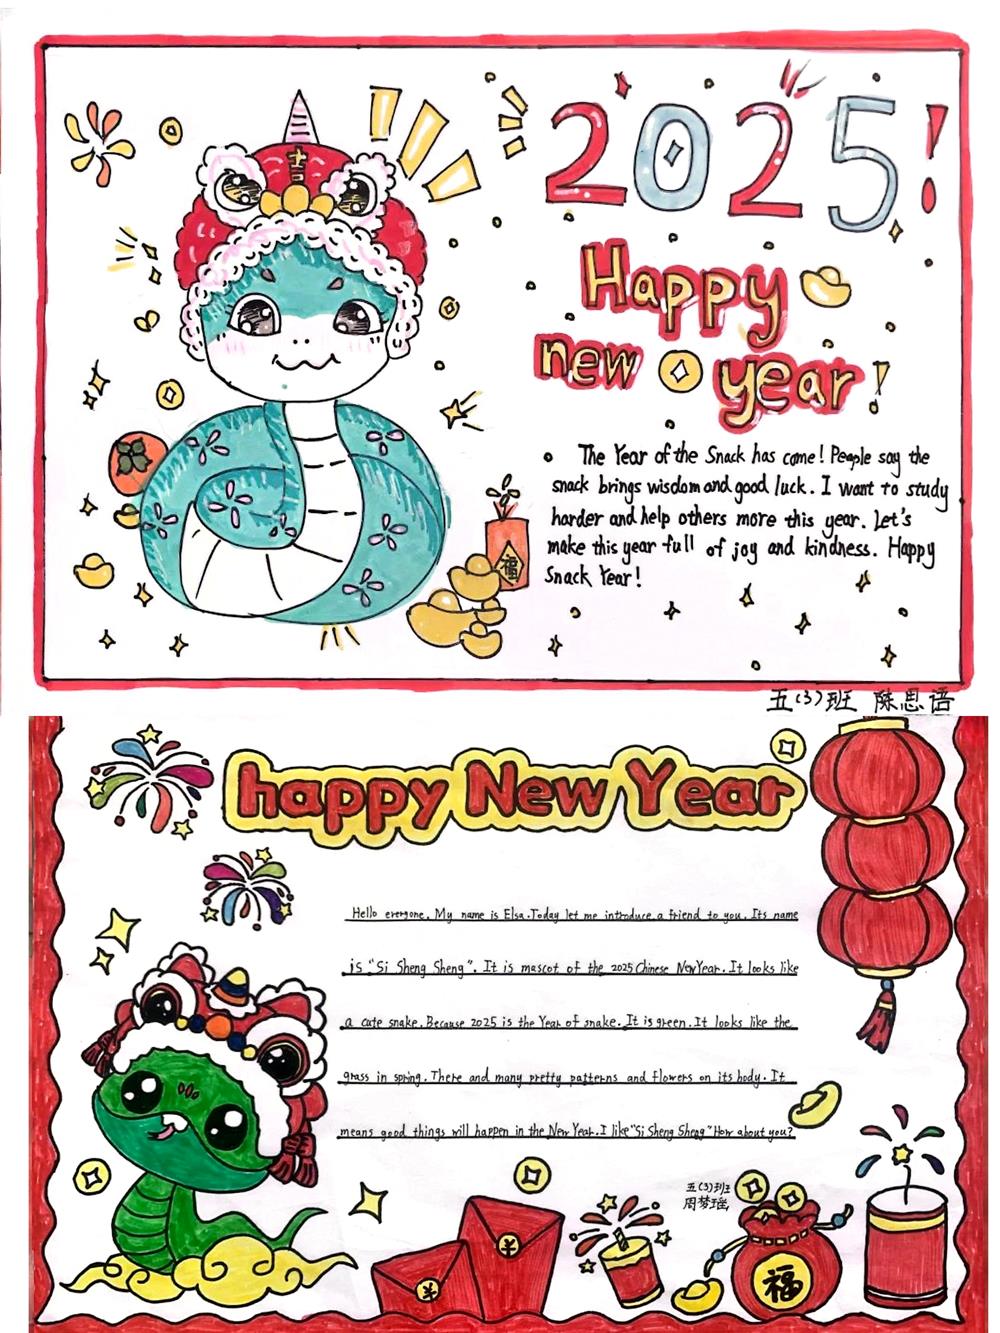 2025!
Happy
new year!
The Year of the Snack has come! People say the
snack brings wisdom and good luck. I want to study
harder and help others more this year. Let's
make this year full of joy and kindness. Happy
Snack Year!
吉
福
五(3)班 陈思语
happy New Year
Hello everyone. My name is Elsa. Today let me introduce a friend to you. Its name
is "Si Sheng Sheng". It is mascot of the 2025 Chinese New Year. It looks like
a cute snake. Because 2025 is the Year of snake. It is green. It looks like the
grass in spring. There and many pretty patterns and flowers on its body. It
means good things will happen in the New Year. I like "Si Sheng Sheng" How about you?
五(3)班
周梦瑶
福